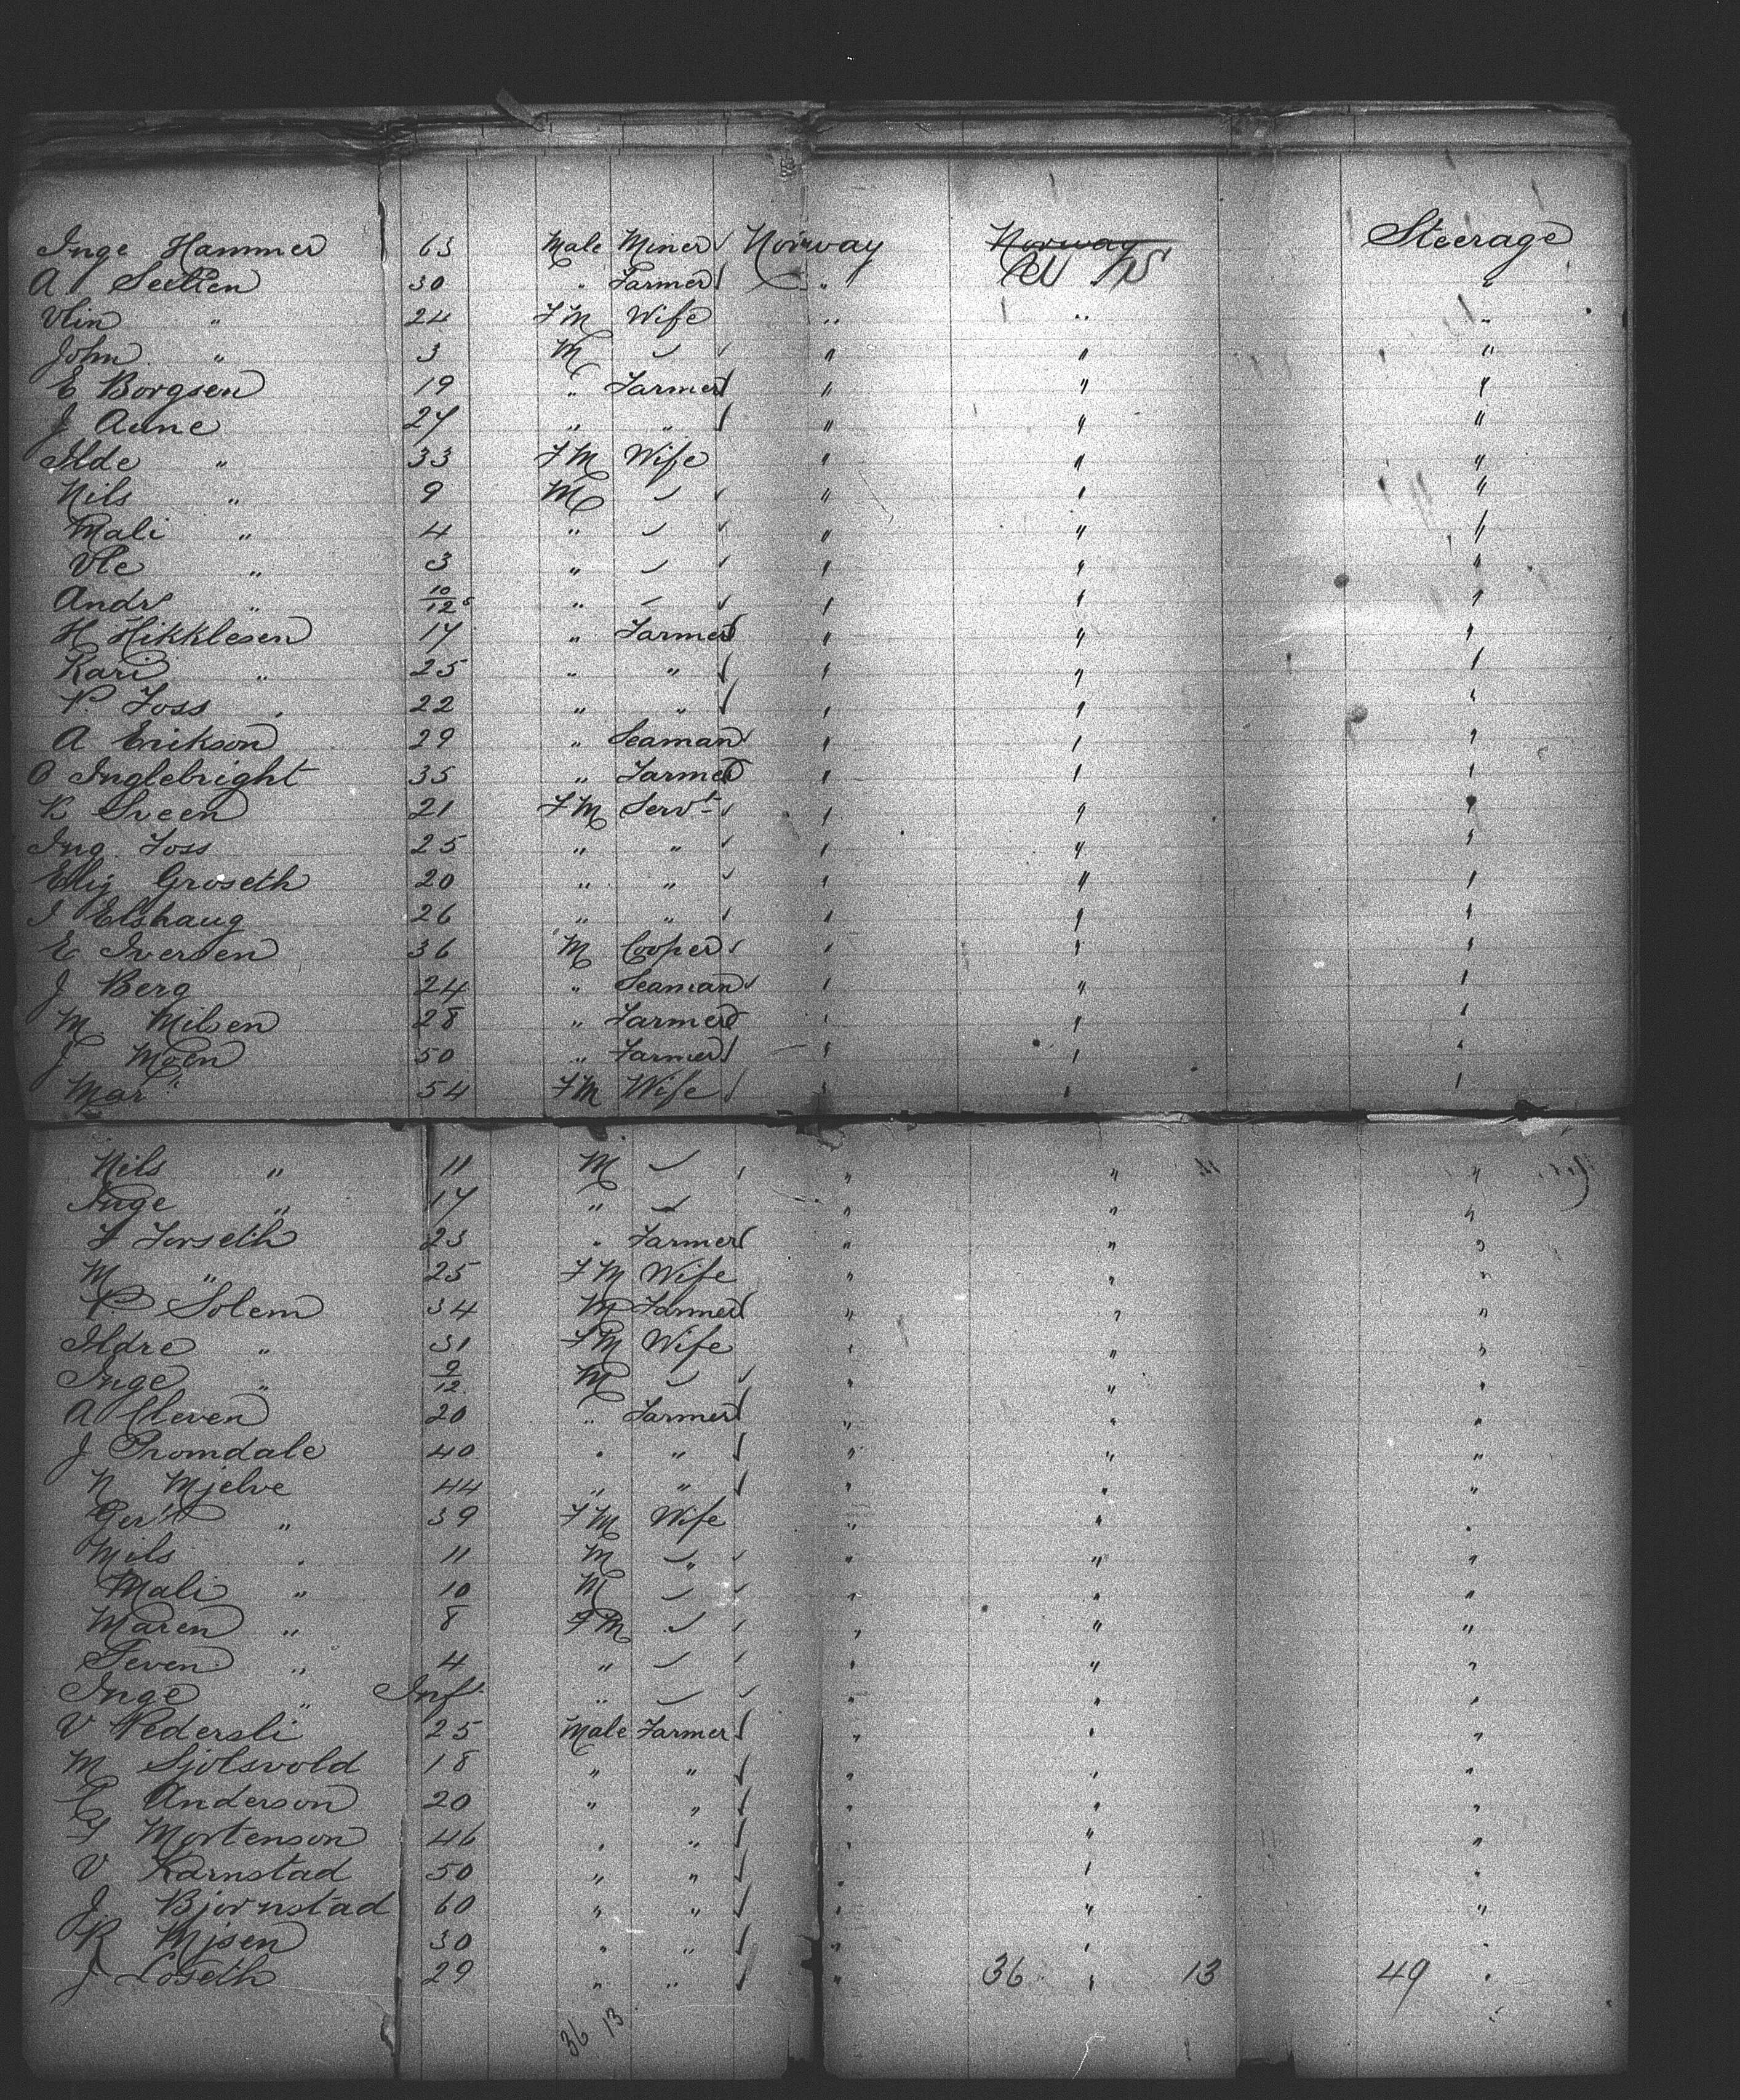 Inge Hammer 63 Male Miner Norway Norway Steerage
A Seetten 30 " Farmer " U S "
Olin " 24 FM Wife " " "
John " 3 M ✓ " " "
E Borgsen 19 " Farmer " " "
J Aune 27 " " " " "
Ilde " 33 FM Wife " " "
Nils " 9 M ✓ " " "
Mali " 4 " ✓ " " "
Ole " 3 " ✓ " " "
Andrs " 10/12 " ✓ " " "
H Hikklesen 17 " Farmer " " "
Kari " 25 " " " " "
P Foss 22 " " " " "
A Erikson 29 " Seaman " " "
O Inglebright 35 " Farmer " " "
K Sveen 21 FM Servt " " "
Ing Foss 25 " " " " "
Elig Groseth 20 " " " " "
I Elshaug 26 " " " " "
E Iversen 36 M Cooper " " "
J Berg 24 " Seaman " " "
M Milsen 28 " Farmer " " "
J Moen 50 " Farmer " " "
Mar " 54 FM Wife " " "
Nils " 11 M ✓ " " "
Inge " 17 " ✓ " " "
F Forseth 23 " Farmer " " "
M " 25 FM Wife " " "
P Solem 34 M Farmer " " "
Ildre " 31 FM Wife " " "
Inge " 9/12 M ✓ " " "
A Cleven 20 " Farmer " " "
J Promdale 40 " " " " "
N Mjelve 44 " " " " "
Ger't " 39 FM Wife " " "
Mils " 11 M ✓ " " "
Mali " 10 M ✓ " " "
Maren " 8 FM ✓ " " "
Teven " 4 " ✓ " " "
Inge " Inft " ✓ " " "
V Pedersli 25 Male Farmer " " "
M Sjolsvold 18 " " " " "
C Anderson 20 " " " " "
G Mortenson 46 " " " " "
V Karnstad 50 " " " " "
J Bjornstad 60 " " " " "
R Mjsen 30 " " " " "
J Loseth 29 " " " 36 " 13 49 "
36 13